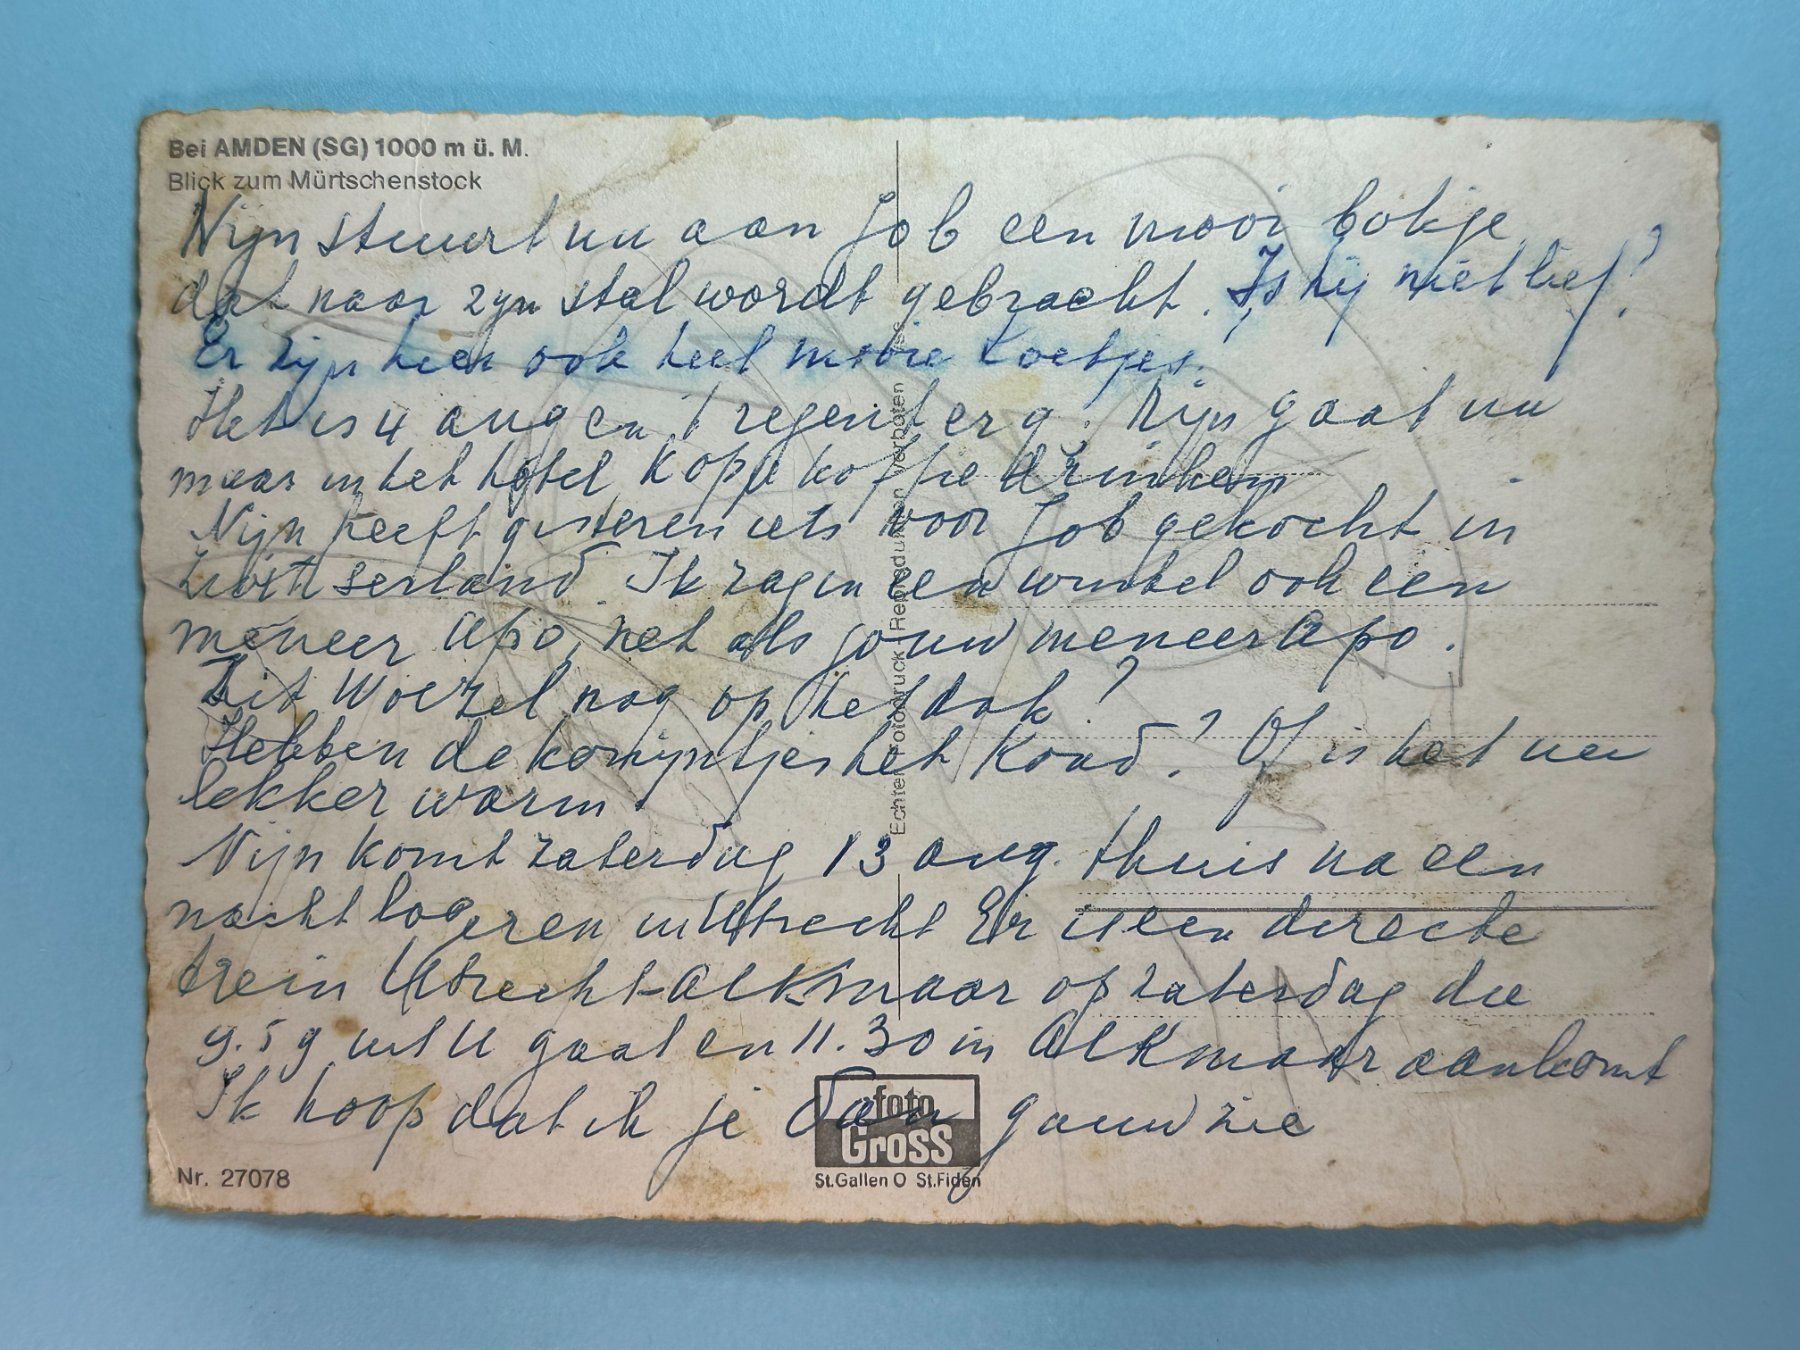 Bei AMDEN (SG) 1000 m ü. M.
Blick zum Mürtschenstock
Nijn stuurt nu aan Job een mooi bokje
dat naar zijn stal wordt gebracht. Is hij niet lief?
Er zijn hier ook heel mooie koetjes.
Het is 4 aug en 't regent erg. Nijn gaat nu
maar in het hotel kopje koffie drinken
Nijn heeft gisteren iets voor Job gekocht in
Zwitserland. Ik zag in een winkel ook een
meneer Apo, net als jouw meneer Apo.
Zit Woezel nog op het dak?
Hebben de konijntjes het koud? Of is het nu
lekker warm
Nijn komt zaterdag 13 aug. thuis na een
nacht logeren in Utrecht Er is een directe
trein Utrecht-Alkmaar op zaterdag die
9.59 uit U gaat en 11.30 in Alkmaar aankomt
Ik hoop dat ik je dan gauw zie
Echter Fotodruck Reproduktion verboten
foto
Gross
St.Gallen O St.Fiden
Nr. 27078